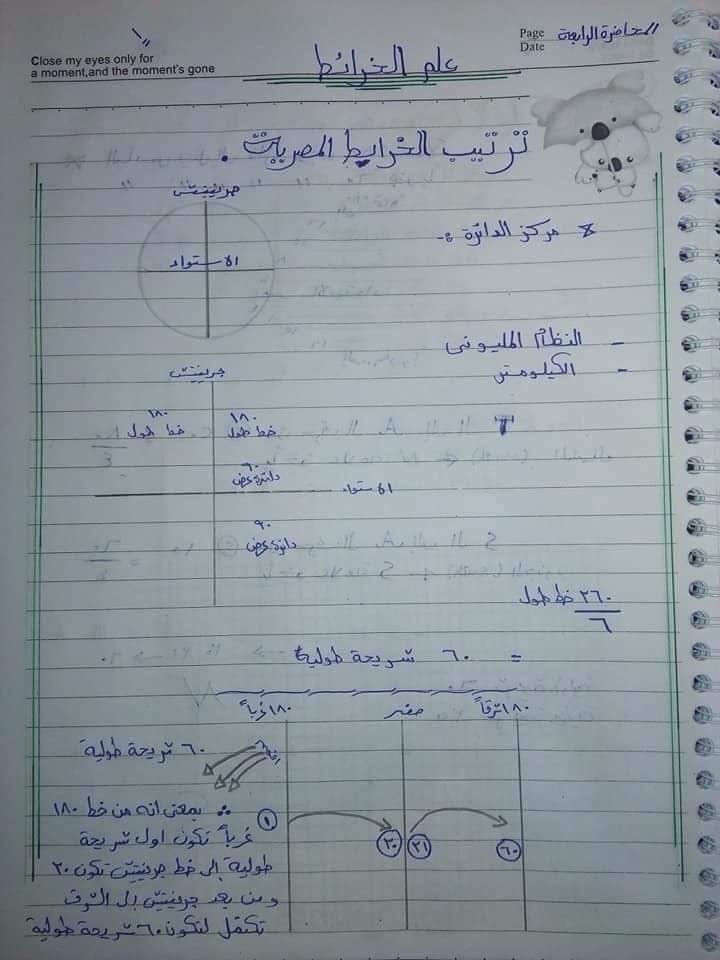 المحاضرة الرابعة
Page
Date
Close my eyes only for
a moment,and the moment's gone
علم الخرائط
ترتيب الخرايط المصرية .
جرينتش
الاستواء
* مركز الدائرة :-
- النظام المليونى
- الكيلومتر
جرينتش
١٨٠ خط طول
١٨٠ خط طول
٩٠ دائرة عرض
الاستواء
٩٠ دائرة عرض
٣٦٠ خط طول
٦
= ٦٠ شريحة طولية
١٨٠ شرقاً
صفر
١٨٠ غرباً
٦٠ شريحة طولية
١
٣٠
٣١
٦٠
∴ بمعنى انه من خط ١٨٠
غرباً تكون اول شريحة
طولية إلى خط جرينتش تكون ٣٠
ومن بعد جرينتش إلى الشرق
تكتمل لتكون ٦٠ شريحة طولية